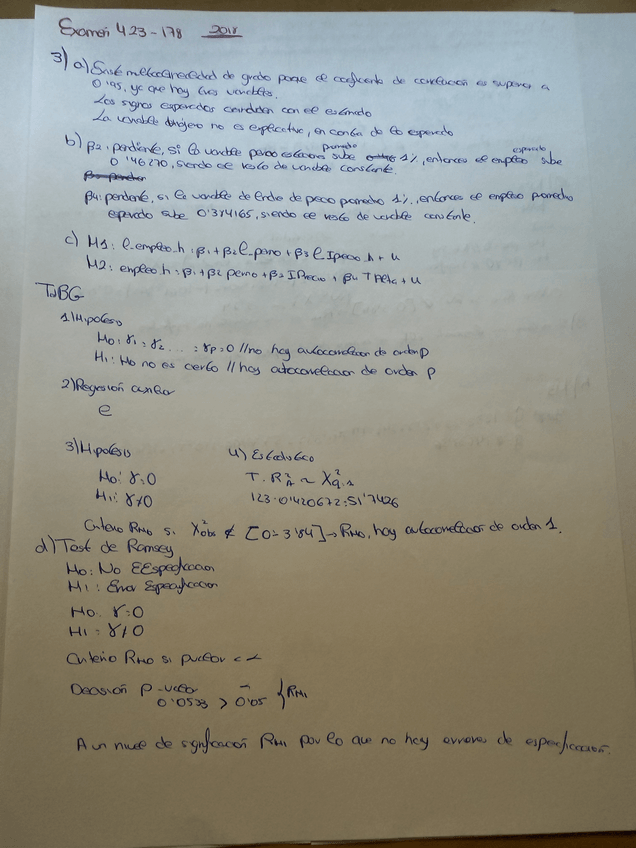 Examen 423-178 2018
3) a) Existe multicolinealidad de grado porque el coeficiente de correlación es superior a
0'95, ya que hay tres variables.
Los signos esperados coinciden con el estimado
La variable extranjero no es explicativa, en contra de lo esperado
b) β2: pendiente, si la variable promedio sube 1%, entonces el empleo esperado sube
0'46270, siendo el resto de variable constante.
β4: pendiente, si la variable de Indice de precio promedio 1%, entonces el empleo promedio
esperado sube 0'374165, siendo el resto de variable constante.
c) M1: l_empleo.h = β1 + β2 l_perno + β3 l_Iprecio.h + u
M2: empleo.h = β1 + β2 perno + β3 IPrecio + β4 + u
TnBG
1) Hipotesis
Ho: γ1 = γ2 ... = γp = 0 // no hay autocorrelacion de orden p
H1: Ho no es cierto // hay autocorrelacion de orden p
2) Regresión auxiliar
e
3) Hipotesis 4) Estadistico
Ho: γ = 0 T. R²A ~ X²q.1
H1: γ ≠ 0 123.0'420672 = 51'7426
Criterio RHo si X²obs ∉ [0-3'84] → RHo, hay autocorrelacion de orden 1.
d) Test de Ramsey
Ho: No EEspecificacion
H1: Error Especificacion
Ho: γ = 0
H1 = γ ≠ 0
Criterio RHo si pvalor < α
Decisión P-valor
0'0533 > 0'05 } RH1
A un nivel de significación RH1 por lo que no hay errores de especificación.